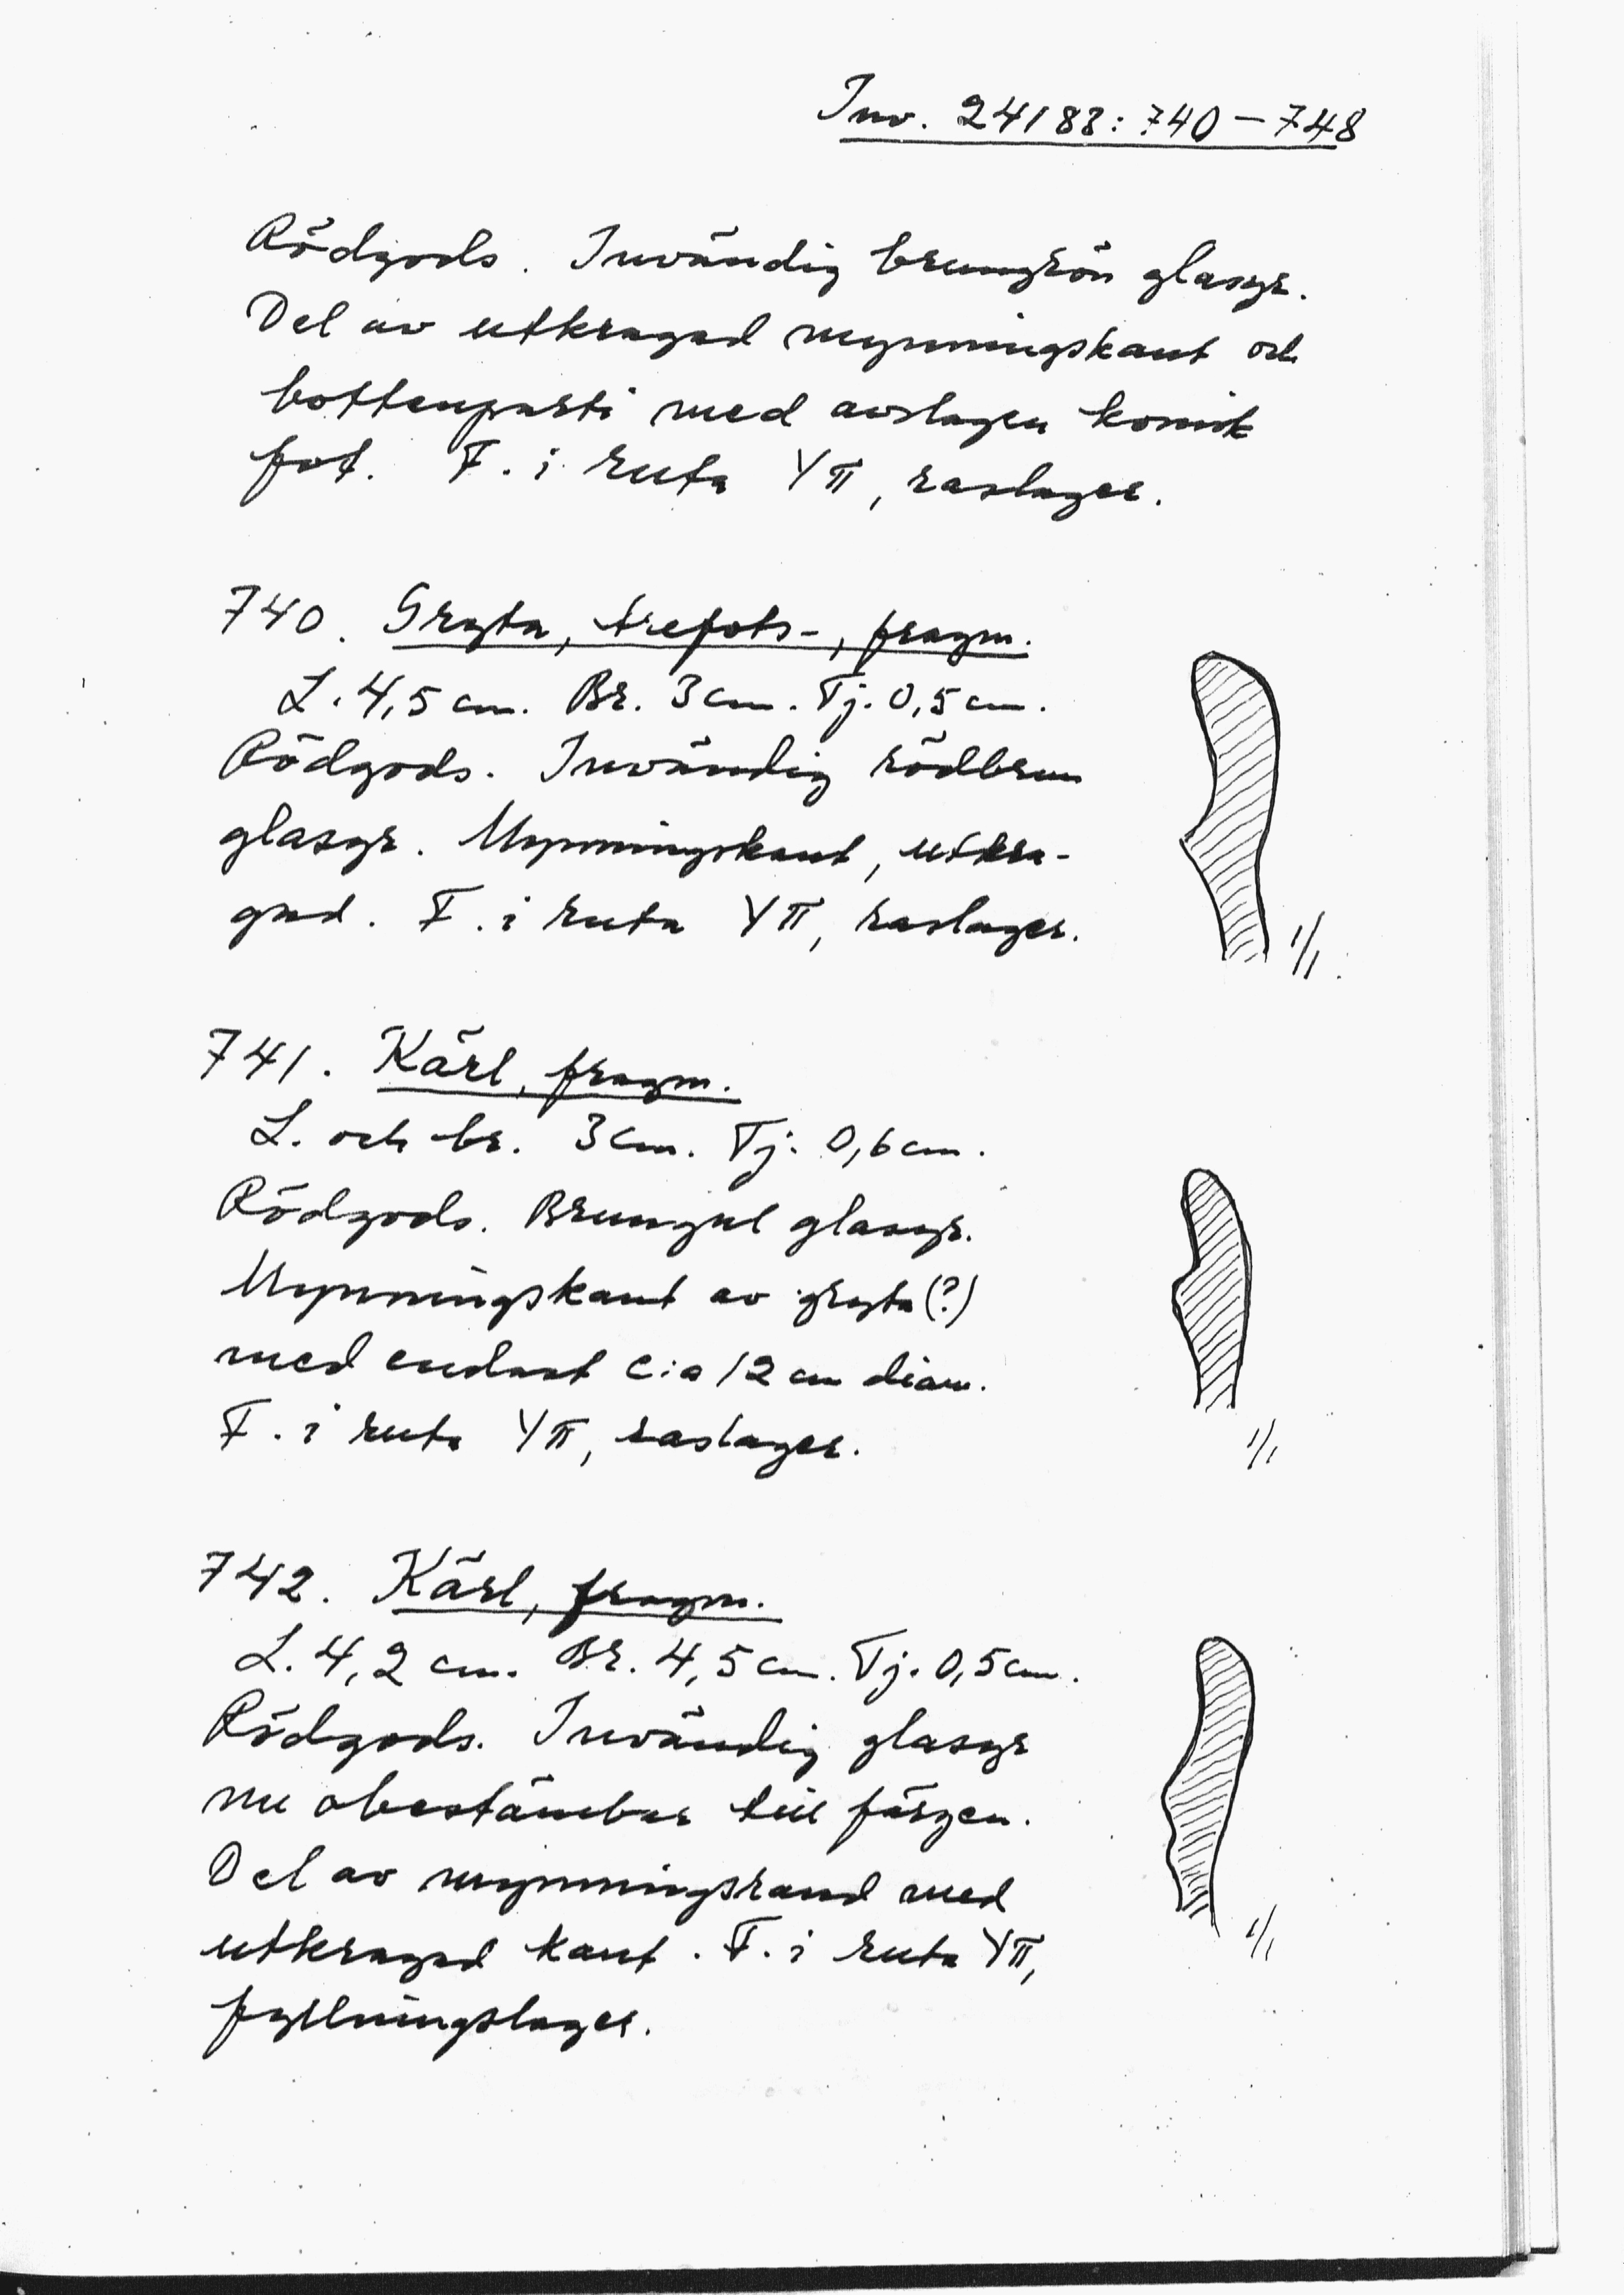 Inv. 24183:740–748
Rödgods. Invändig brungrön glasyr.
Del av utkragad mynningskant och
bottenparti med avslagen konisk
fot. F. i ruta YΠ, raslager.
740. Gryta, trefots-, fragm.
L. 4,5 cm. Br. 3 cm. Tj. 0,5 cm.
Rödgods. Invändig rödbrun
glasyr. Mynningskant, utkra-
gad. F. i ruta YΠ, raslager.
1/1
741. Kärl, fragm.
L. och br. 3 cm. Tj. 0,6 cm.
Rödgods. Brungul glasyr.
Mynningskant av gryta (?)
med endast c:a 12 cm diam.
F. i ruta YΠ, raslager.
1/1
742. Kärl, fragm.
L. 4,2 cm. Br. 4,5 cm. Tj. 0,5 cm.
Rödgods. Invändig glasyr
nu obestämbar till färgen.
Del av mynningsrand med
utkragad kant. F. i ruta YΠ,
fyllningslager.
1/1